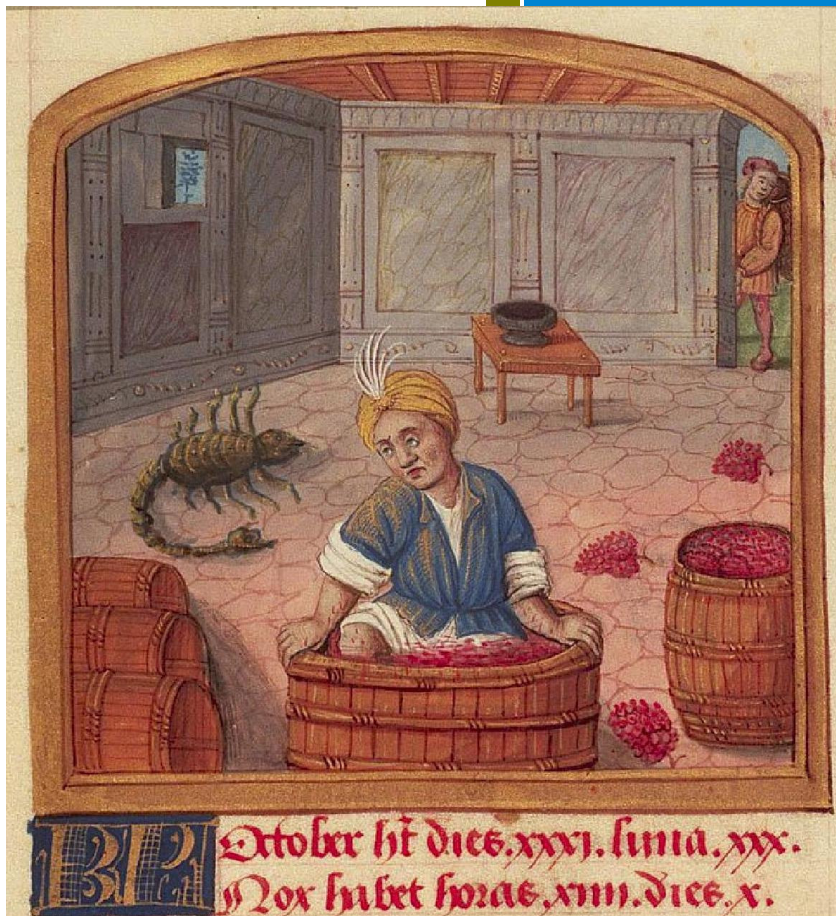 KL
October ht dies.xxxi.luna.xxx.
Nox habet horas.xiiii.dies.x.